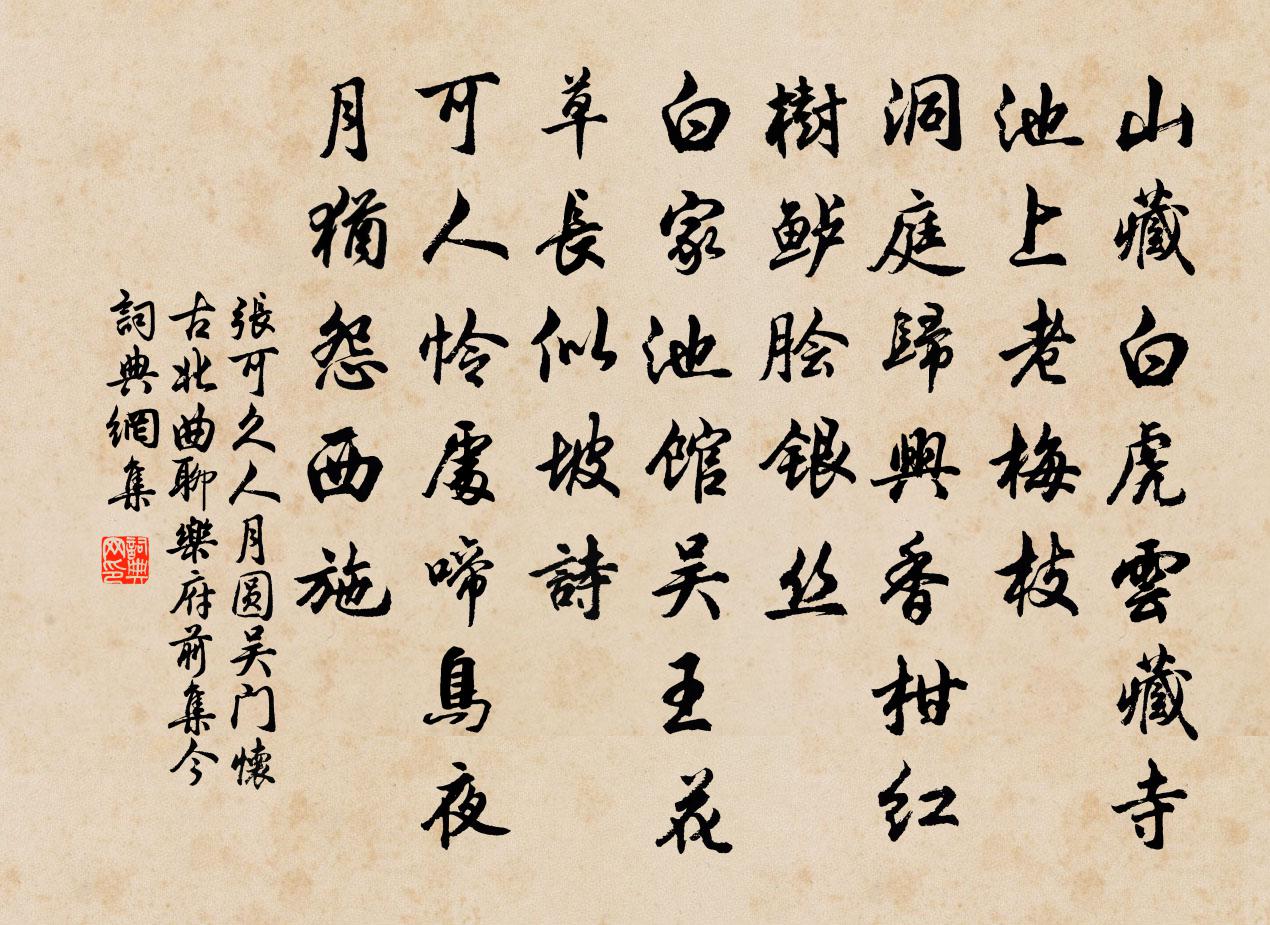 山藏白虎雲藏寺
池上老梅枝
洞庭歸興香柑紅
樹鲈脍銀丝
白家池馆吴王花
草長似坡詩
可人怜處啼鳥夜
月猶怨西施
張可久人月圆吴门懷
古北曲聊樂府前集今
詞典網集
詞典网印